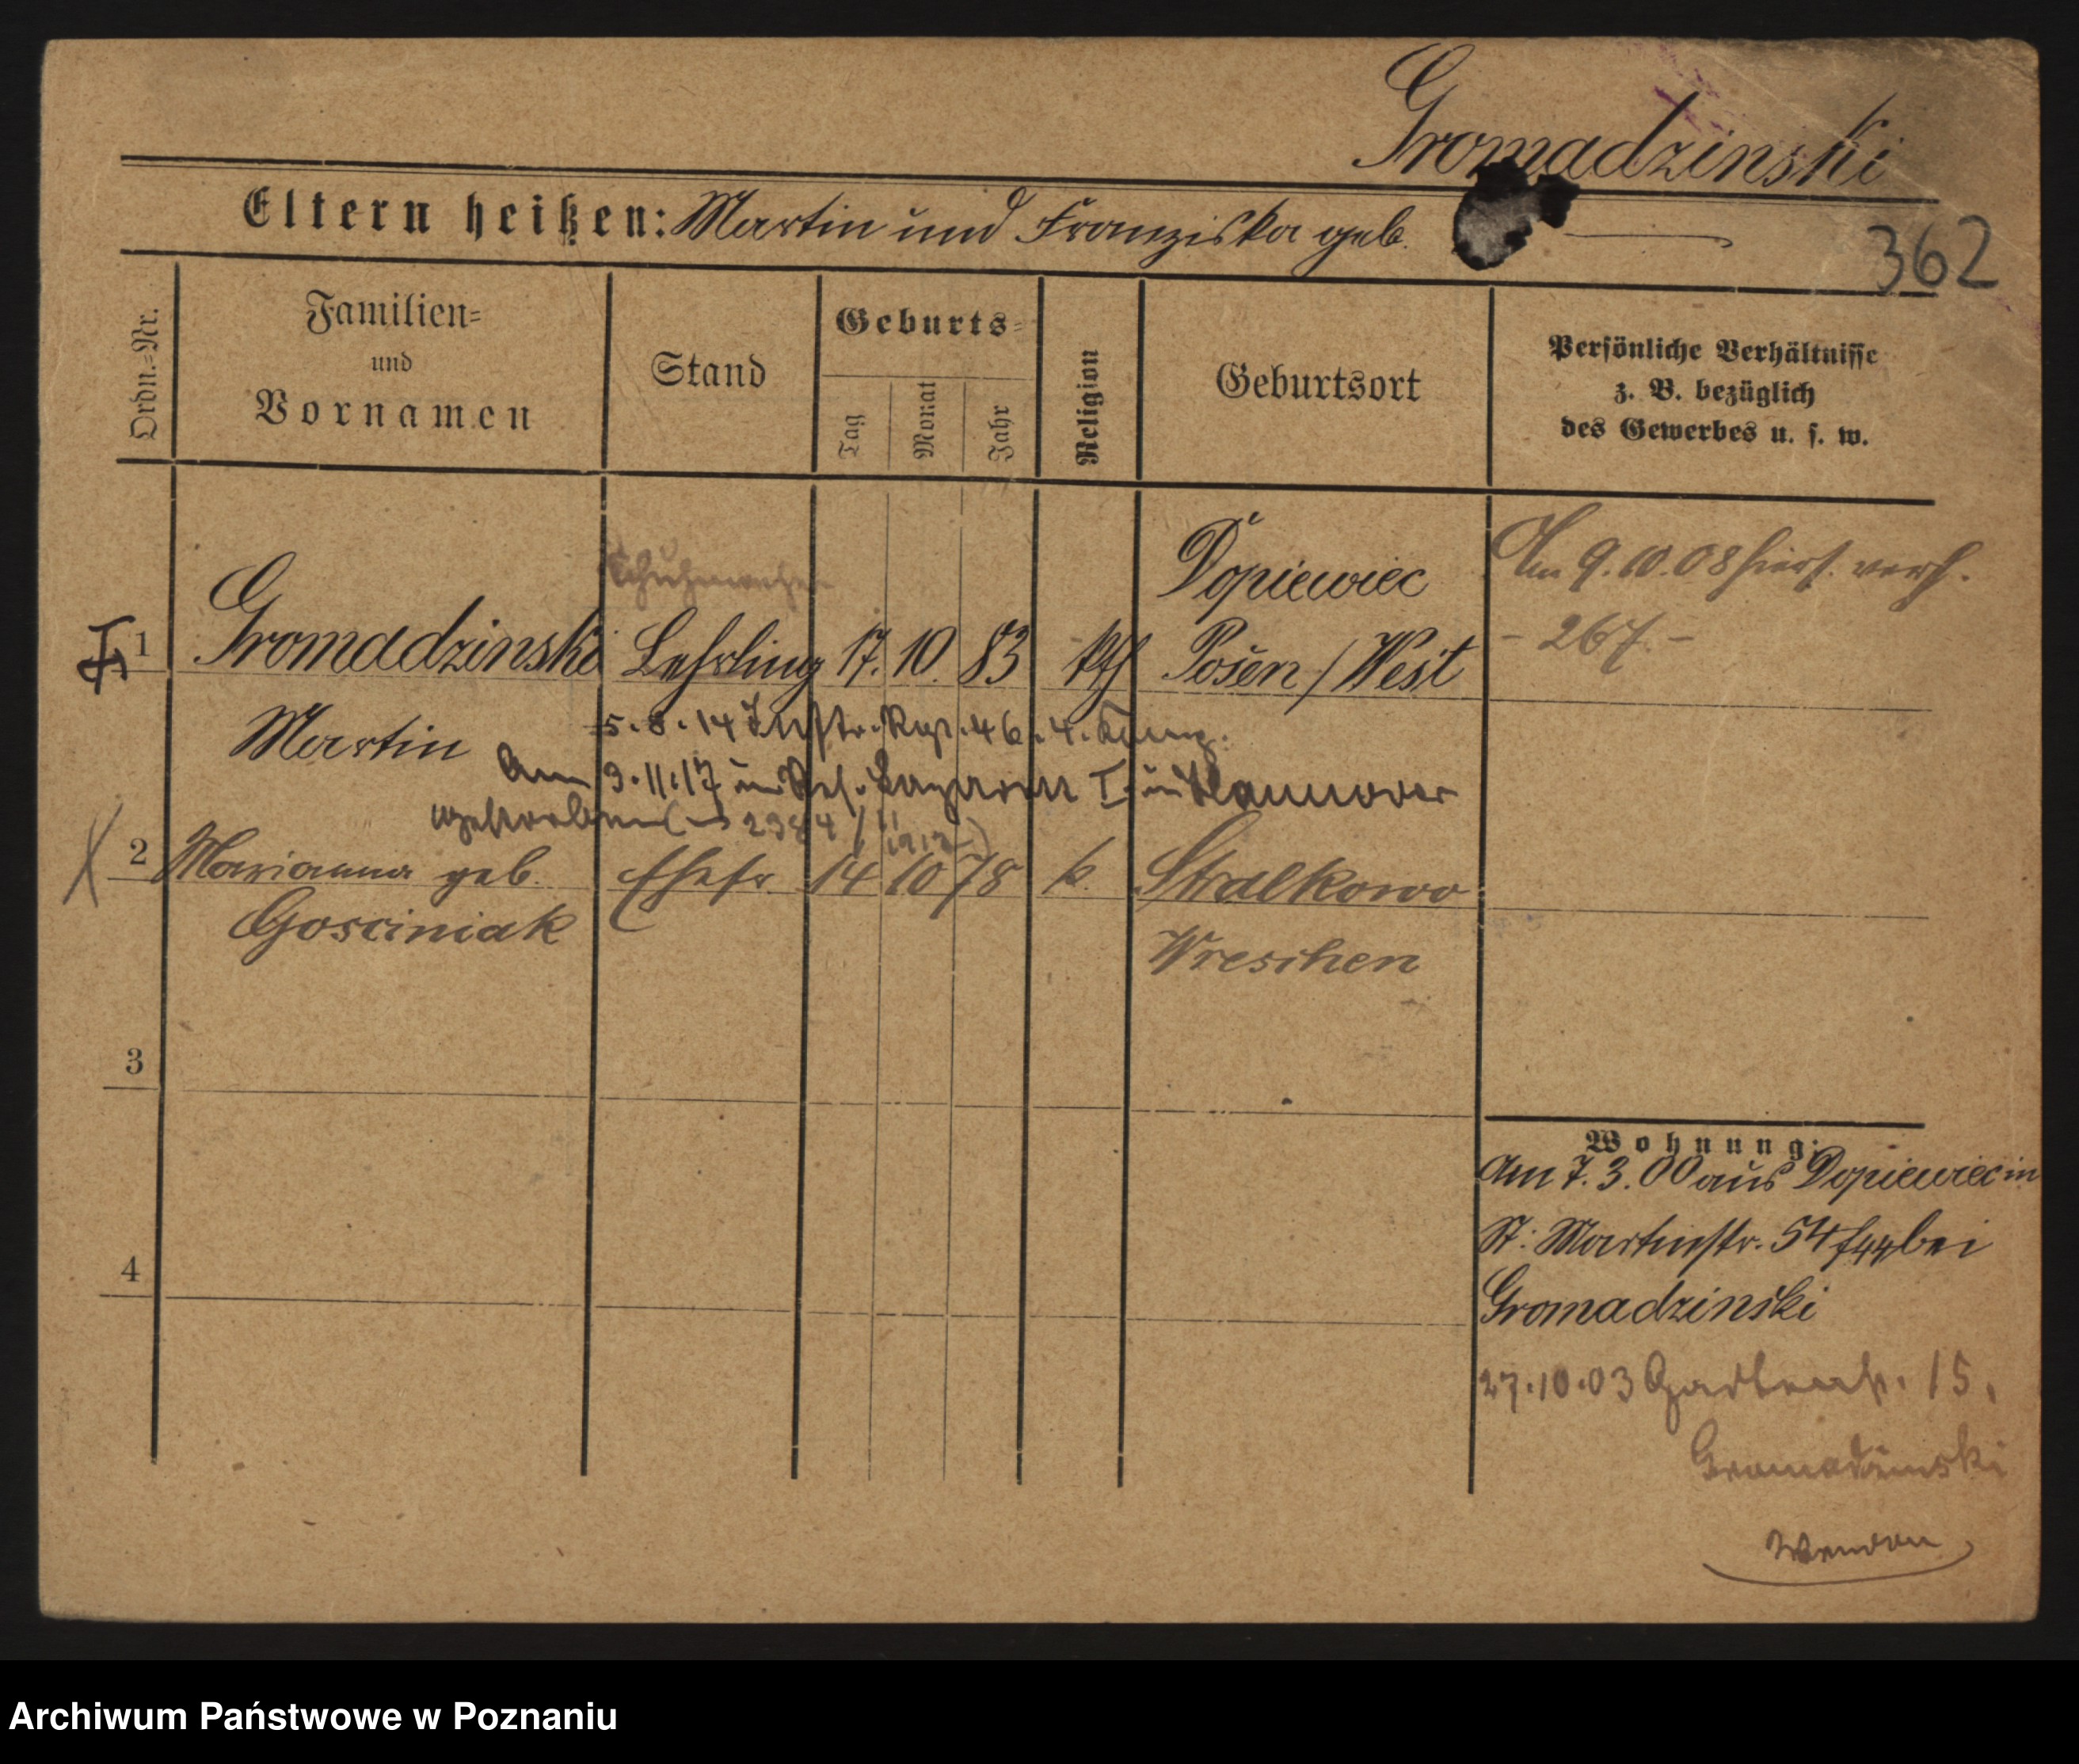 Gromadzinski
Eltern heißen: Martin und Franziska geb.
362
Ordn.-Nr.
Familien-
und
Vornamen
Stand
Geburts-
Tag
Monat
Jahr
Religion
Geburtsort
Persönliche Verhältnisse
z. B. bezüglich
des Gewerbes u. s. w.
Schuhmacher
Dopiewiec
Am 9.10.08 hiers. verh.
1 Gromadzinski Lehrling 17. 10. 83 kth Posen / West
- 267. -
Martin
5.8.14 Inftr. Rgt. 46. 4. Komp.
Am 9.11.17 im Res. Lazarett I in Hannover
gestorben 2384/1917
2 Marianna geb. Ehefr. 14 10 78 k. Stralkowo
Gosciniak
Wreschen
3
4
Wohnung:
Am 7.3.00 aus Dopiewiec in
St. Martinstr. 54 bei
Gromadzinski
27.10.03 Gartenstr. 15.
Gromadzinski
Wenden
Archiwum Państwowe w Poznaniu